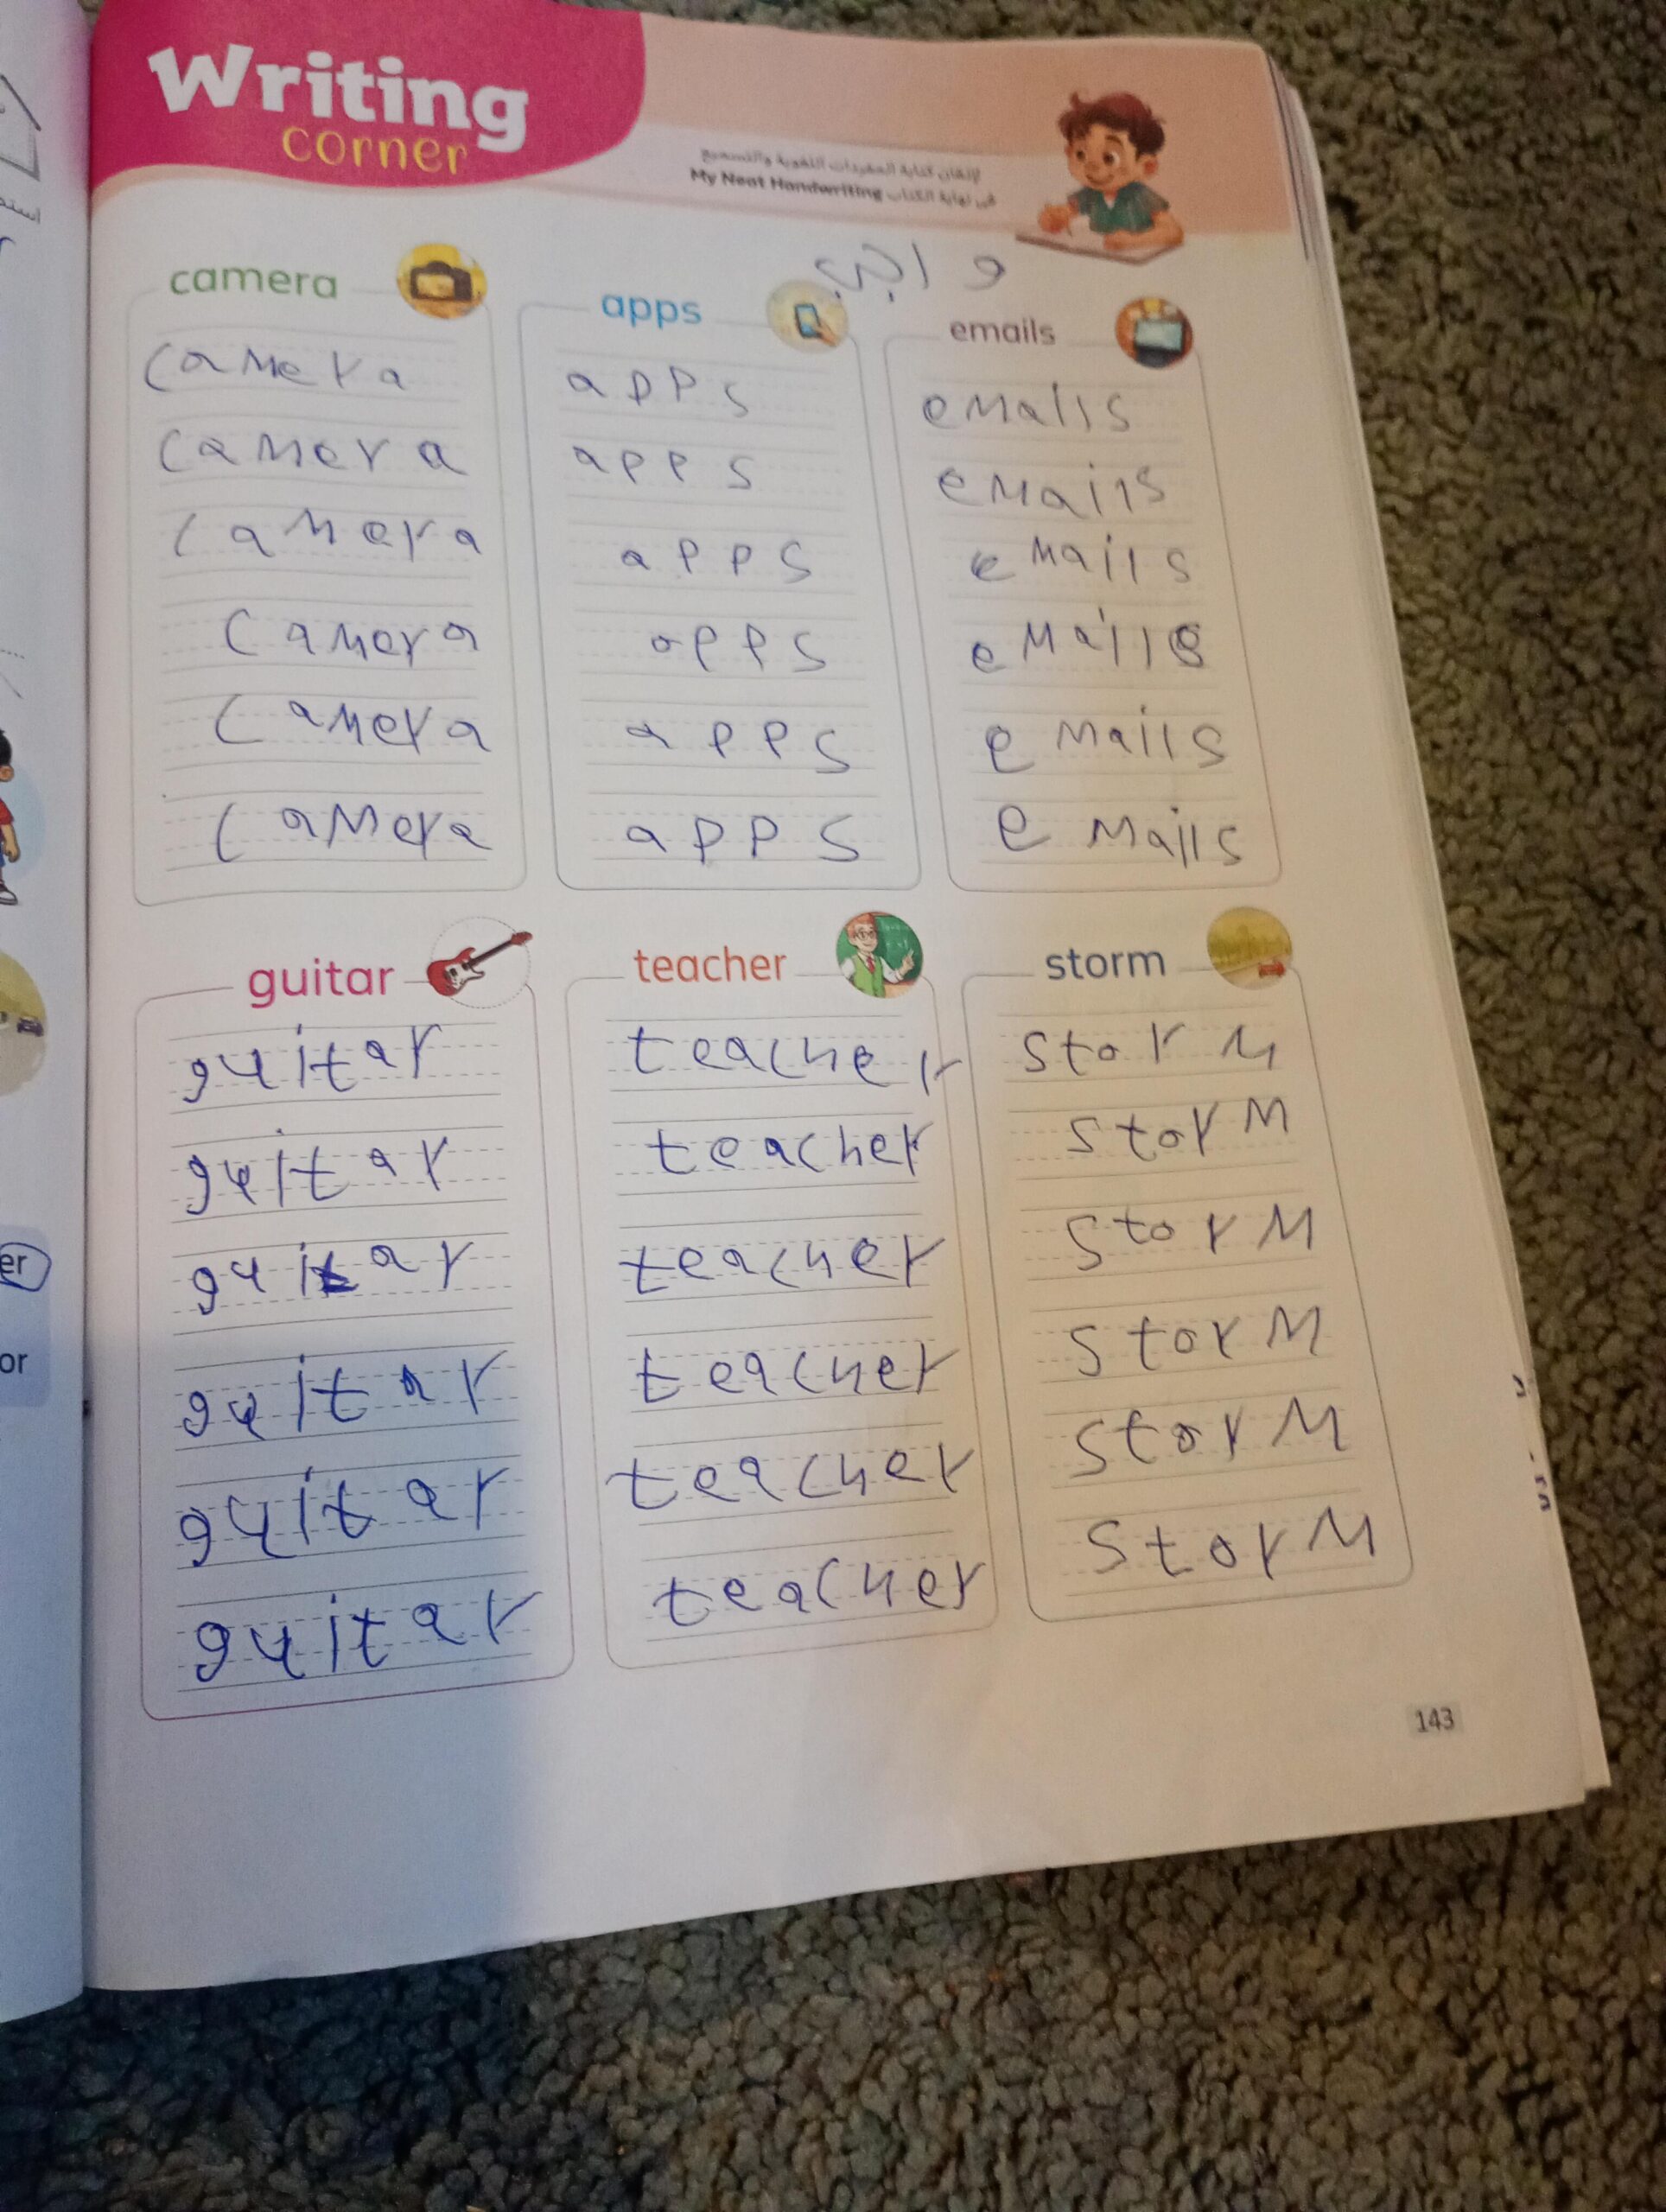 Writing
corner
لإتقان كتابة المفردات اللغوية والتسميع
My Neat Handwriting في نهاية الكتاب
واجب
camera
camera
camera
camera
camera
camera
camera
apps
apps
apps
apps
apps
apps
apps
emails
emalls
emails
emails
emails
emails
emails
guitar
guitar
guitar
guitar
guitar
guitar
guitar
teacher
teacher
teacher
teacher
teacher
teacher
teacher
storm
storM
storM
storM
storM
storM
storM
143
er
or